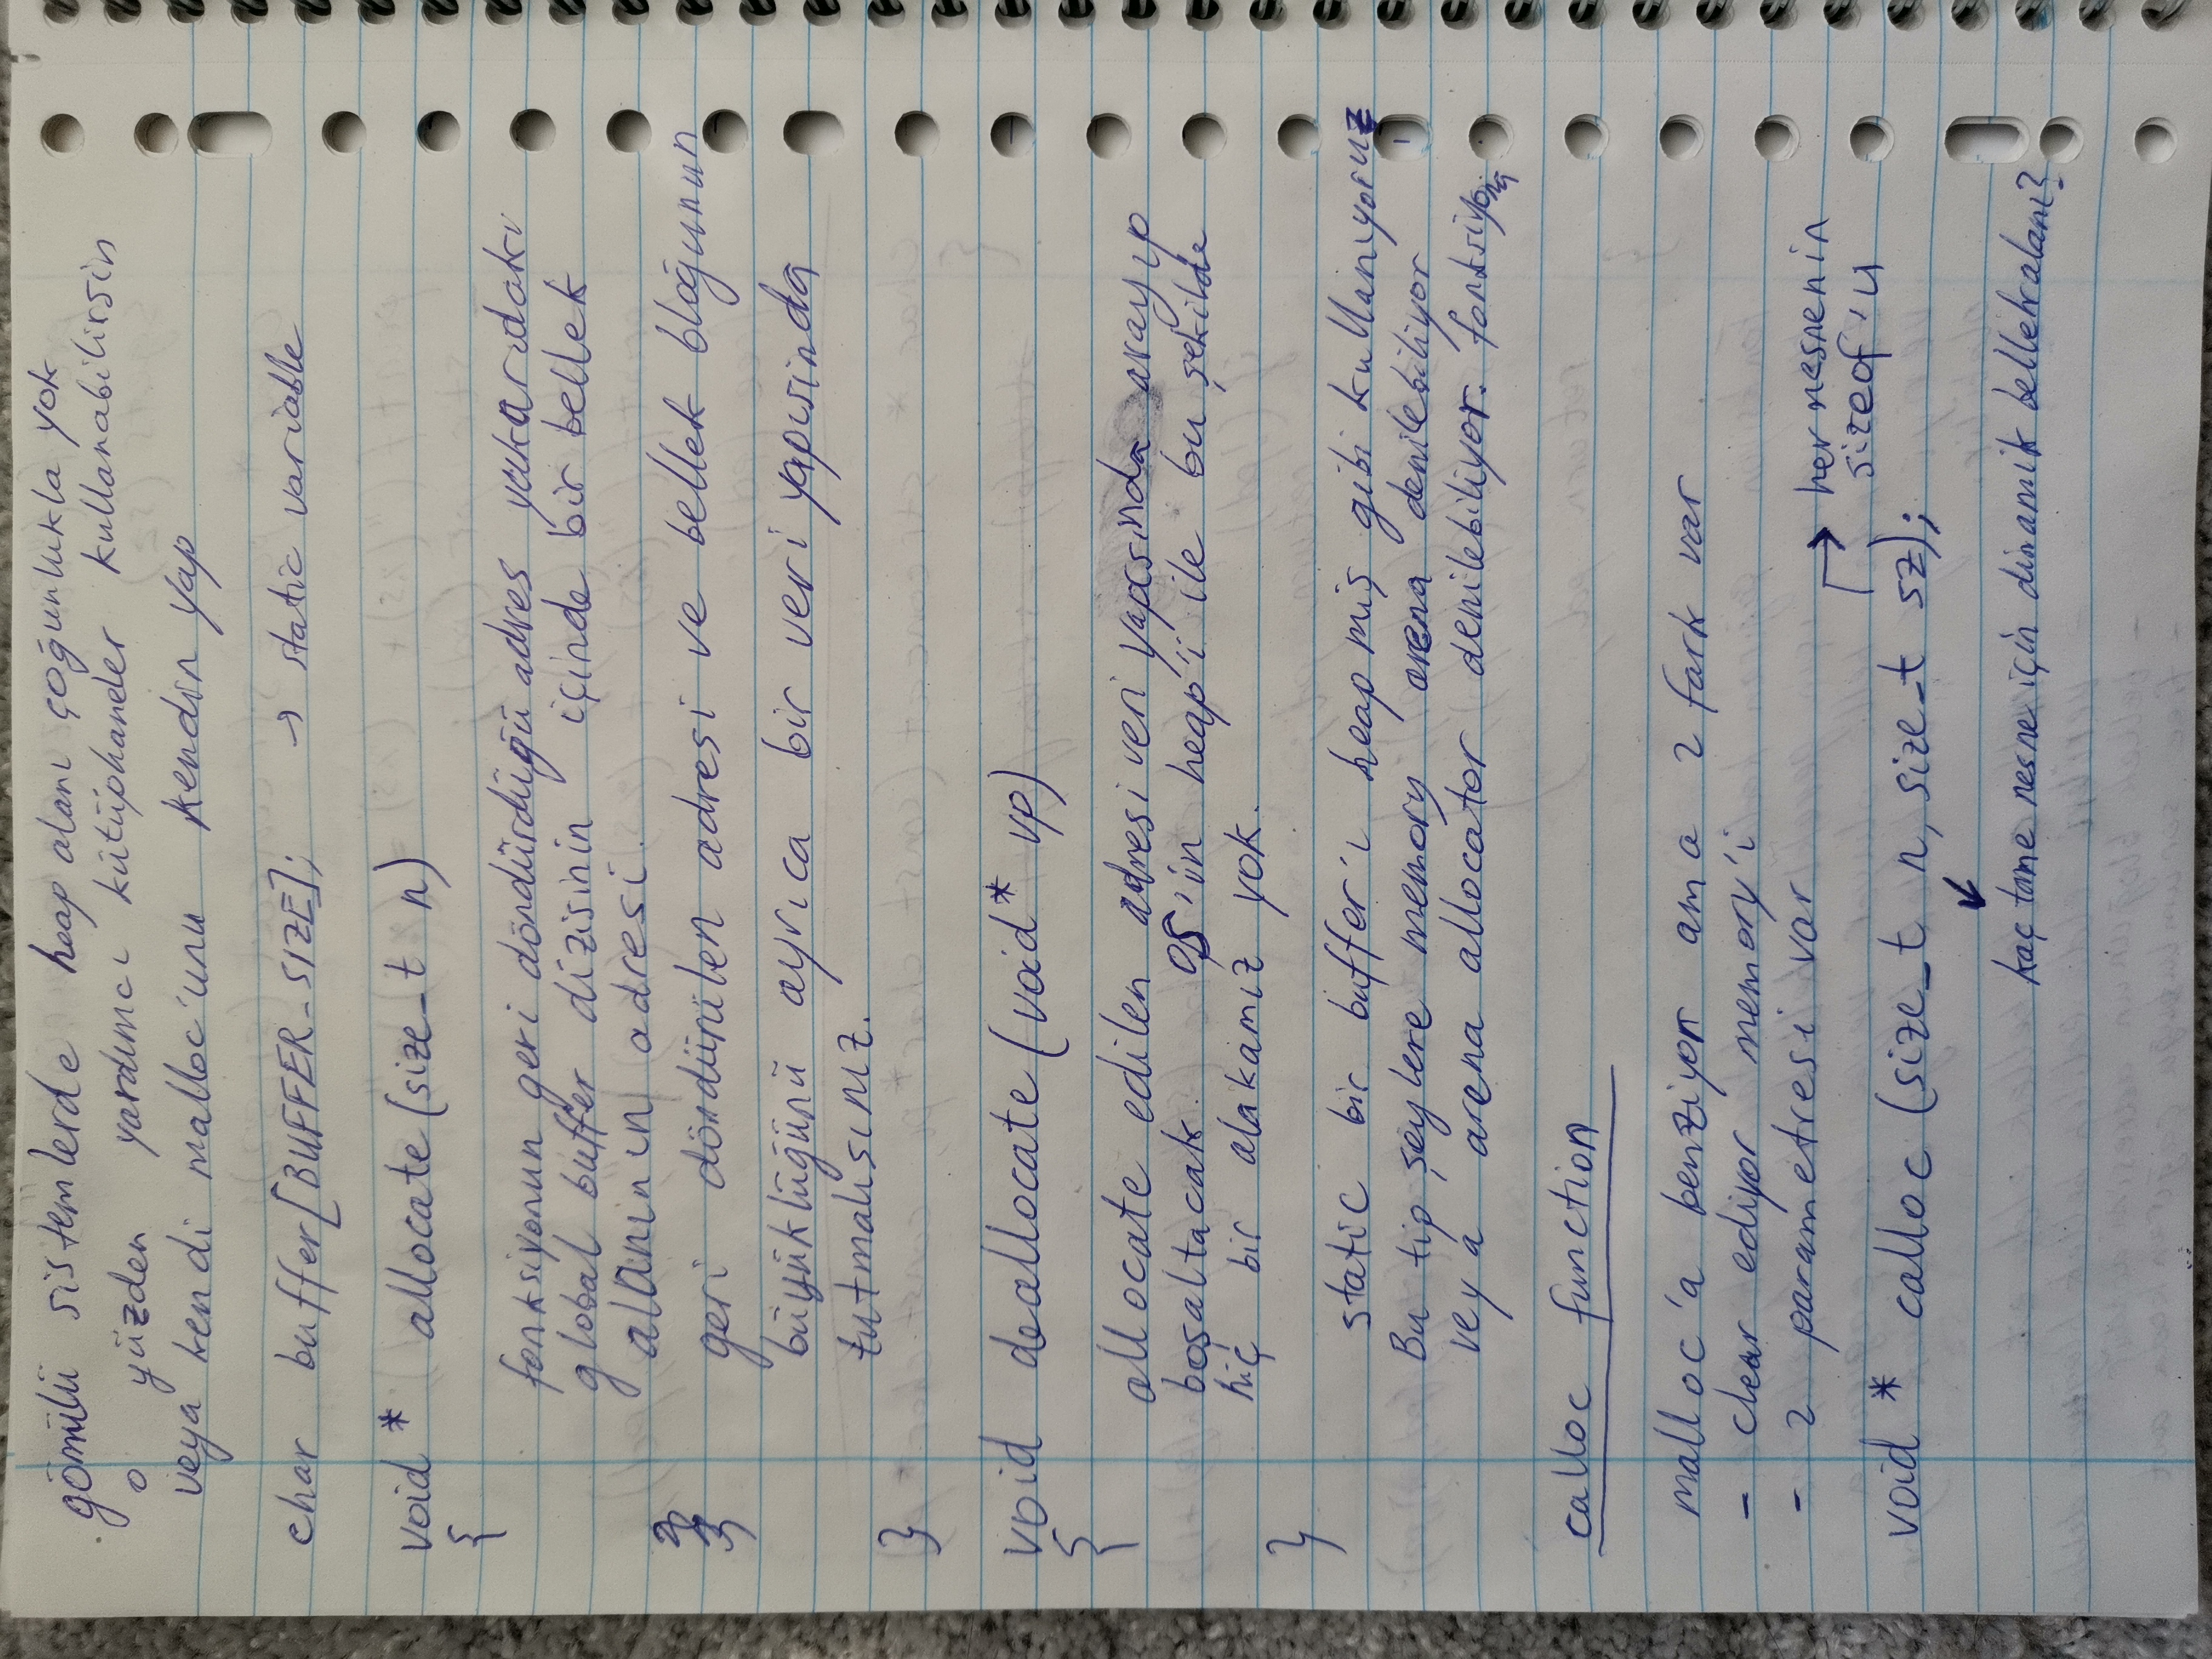 gömülü sistemlerde heap alanı çoğunlukla yok
o yüzden yardımcı kütüphaneler kullanabilirsin
veya kendi malloc'unu kendin yap
char buffer[BUFFER_SIZE]; → static variable
void * allocate (size_t n)
{
fonksiyonun geri döndürdüğü adres yukarıdaki
global buffer dizisinin içinde bir bellek
alanının adresi.
geri döndürülen adresi ve bellek bloğunun
büyüklüğünü ayrıca bir veri yapısında
tutmalısınız.
}
void deallocate (void* vp)
{
allocate edilen adresi veri yapısında arayıp
boşaltacak. OS'in heap'i ile bu şekilde
hiç bir alakamız yok.
}
static bir buffer'ı heap miş gibi kullanıyoruz
Bu tip şeylere memory arena denilebiliyor
veya arena allocator denilebiliyor. fonksiyona
calloc function
malloc'a benziyor ama 2 fark var
- clear ediyor memory'i
- 2 parametresi var
→ her nesnenin
sizeof'u
void * calloc (size_t n, size_t sz);
↓
kaç tane nesne için dinamik bellek alanı?